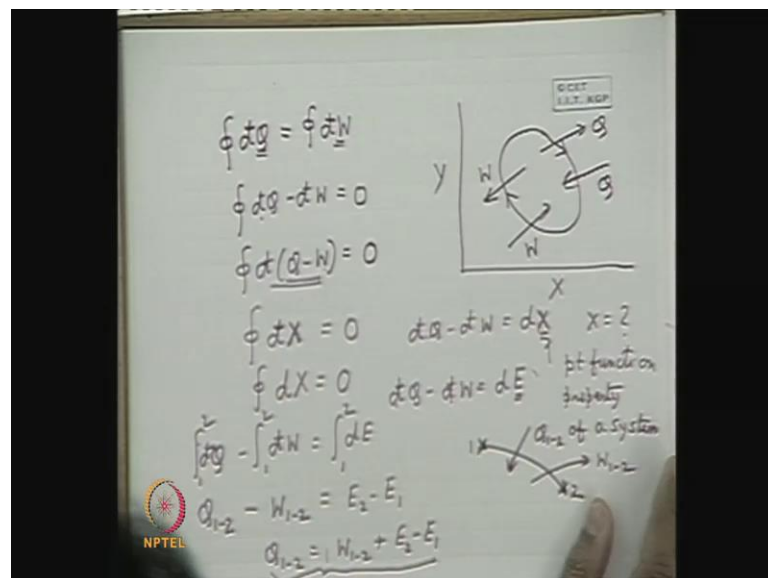 © CET
I.I.T. KGP
∮ đQ = ∮ đW
∮ đQ - đW = 0
∮ đ(Q-W) = 0
∮ đX = 0
đQ - đW = dX
x = ?
?
∮ dX = 0
đQ - đW = dE
pt function
property
of a system
∫₁² đQ - ∫₁² đW = ∫₁² dE
Q₁₋₂ - W₁₋₂ = E₂ - E₁
Q₁₋₂ = W₁₋₂ + E₂ - E₁
Y
W
Q
Q
W
X
1
Q₁₋₂
W₁₋₂
2
NPTEL